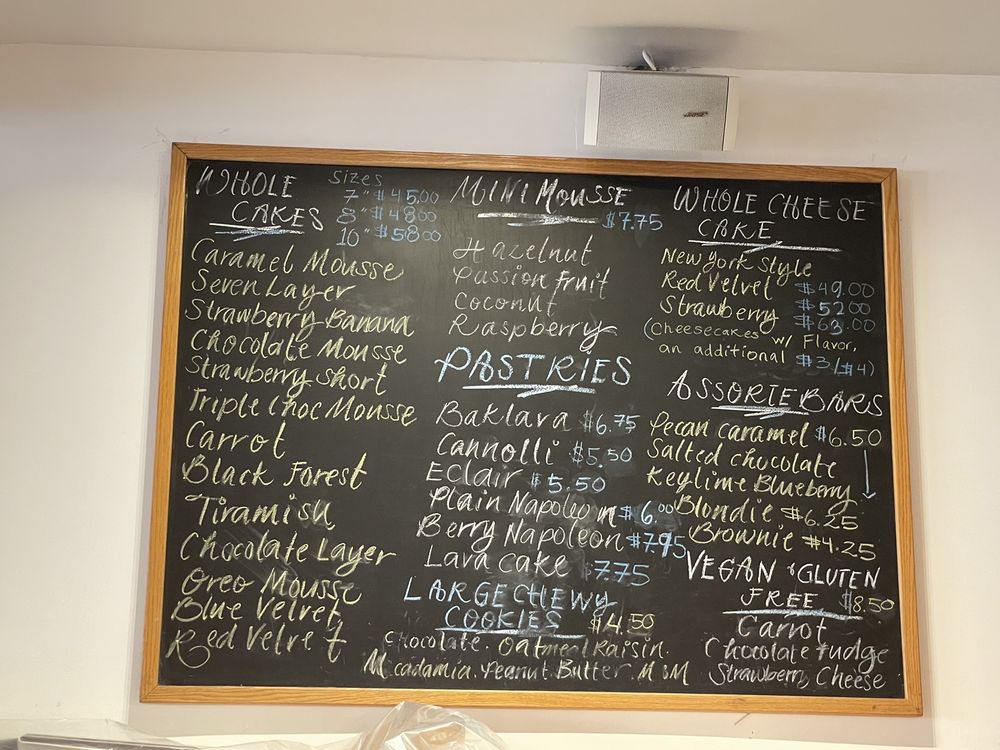 BOSE
WHOLE
CAKES
Sizes
7" $45.00
8" $48.00
10" $58.00
Caramel Mousse
Seven Layer
Strawberry Banana
Chocolate Mousse
Strawberry Short
Triple Choc Mousse
Carrot
Black Forest
Tiramisu
Chocolate Layer
Oreo Mousse
Blue Velvet
Red Velvet
MINI Mousse
$7.75
Hazelnut
Passion Fruit
Coconut
Raspberry
PASTRIES
Baklava $6.75
Cannolli $5.50
Eclair $5.50
Plain Napoleon $6.00
Berry Napoleon $7.95
Lava cake $7.75
LARGE CHEWY
COOKIES $4.50
Chocolate. Oatmeal Raisin.
Macadamia. Peanut Butter. M&M
WHOLE CHEESE
CAKE
New York Style
Red Velvet $49.00
Strawberry $52.00
$63.00
(Cheesecakes w/ Flavor,
an additional $3/$4)
ASSORTE BARS
Pecan caramel $6.50
Salted chocolate
Keylime Blueberry
Blondie $6.25
Brownie $4.25
VEGAN & GLUTEN
FREE $8.50
Carrot
Chocolate Fudge
Strawberry, Cheese